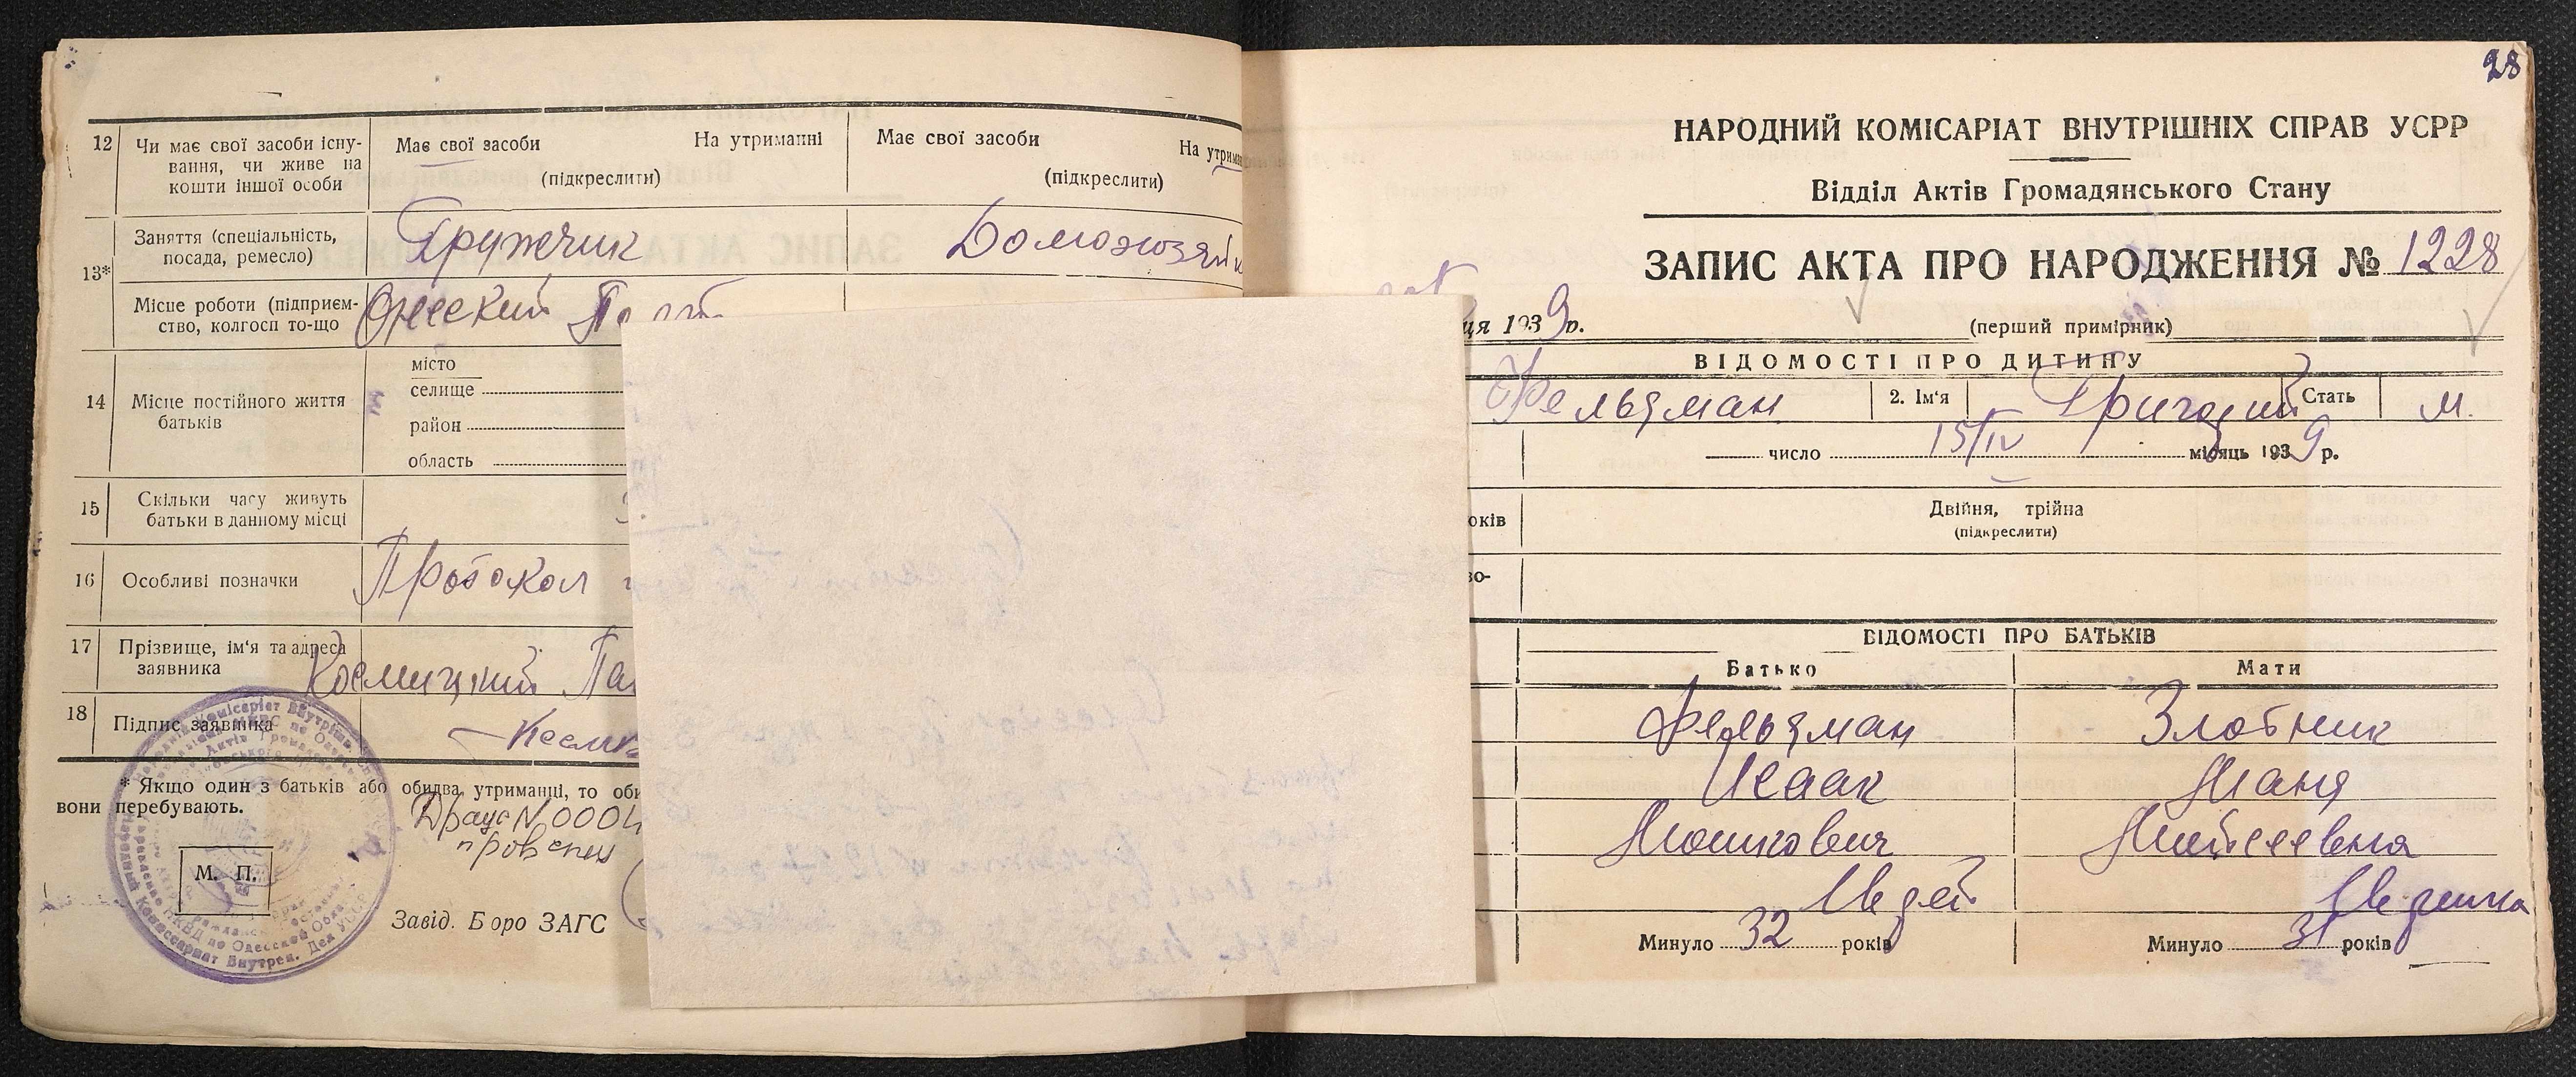 12
Чи має свої засоби існу-
вання, чи живе на
кошти іншої особи
Має свої засоби
На утриманні
(підкреслити)
Має свої засоби
На утрима
(підкреслити)
13*
Заняття (спеціальність,
посада, ремесло)
Грузчик
Домохозяйк
Місце роботи (підприєм-
ство, колгосп то-що
Одесский
14
Місце постійного життя
батьків
місто
селище
район
область
15
Скільки часу живуть
батьки в данному місці
16
Особливі позначки
Протокол
17
Прізвище, ім'я та адреса
заявника
18
Підпис заявника
* Якщо один з батьків або обидва утриманці, то оби
вони перебувають.
М. П.
Завід. Боро ЗАГС
28
НАРОДНИЙ КОМІСАРІАТ ВНУТРІШНІХ СПРАВ УСРР
Відділ Актів Громадянського Стану
ЗАПИС АКТА ПРО НАРОДЖЕННЯ № 1228
ця 1939 р.
(перший примірник)
ВІДОМОСТІ ПРО ДИТИНУ
Фельдман
2. Ім'я
Григорий
Стать
м.
число 15/IV місяць 1939 р.
оків
Двійня, трійна
(підкреслити)
во-
ВІДОМОСТІ ПРО БАТЬКІВ
Батько
Мати
Фельдман
Злотник
Исаак
Маня
Мошкович
Мойсеевна
Иудей
Иудейка
Минуло 32 років
Минуло 31 років